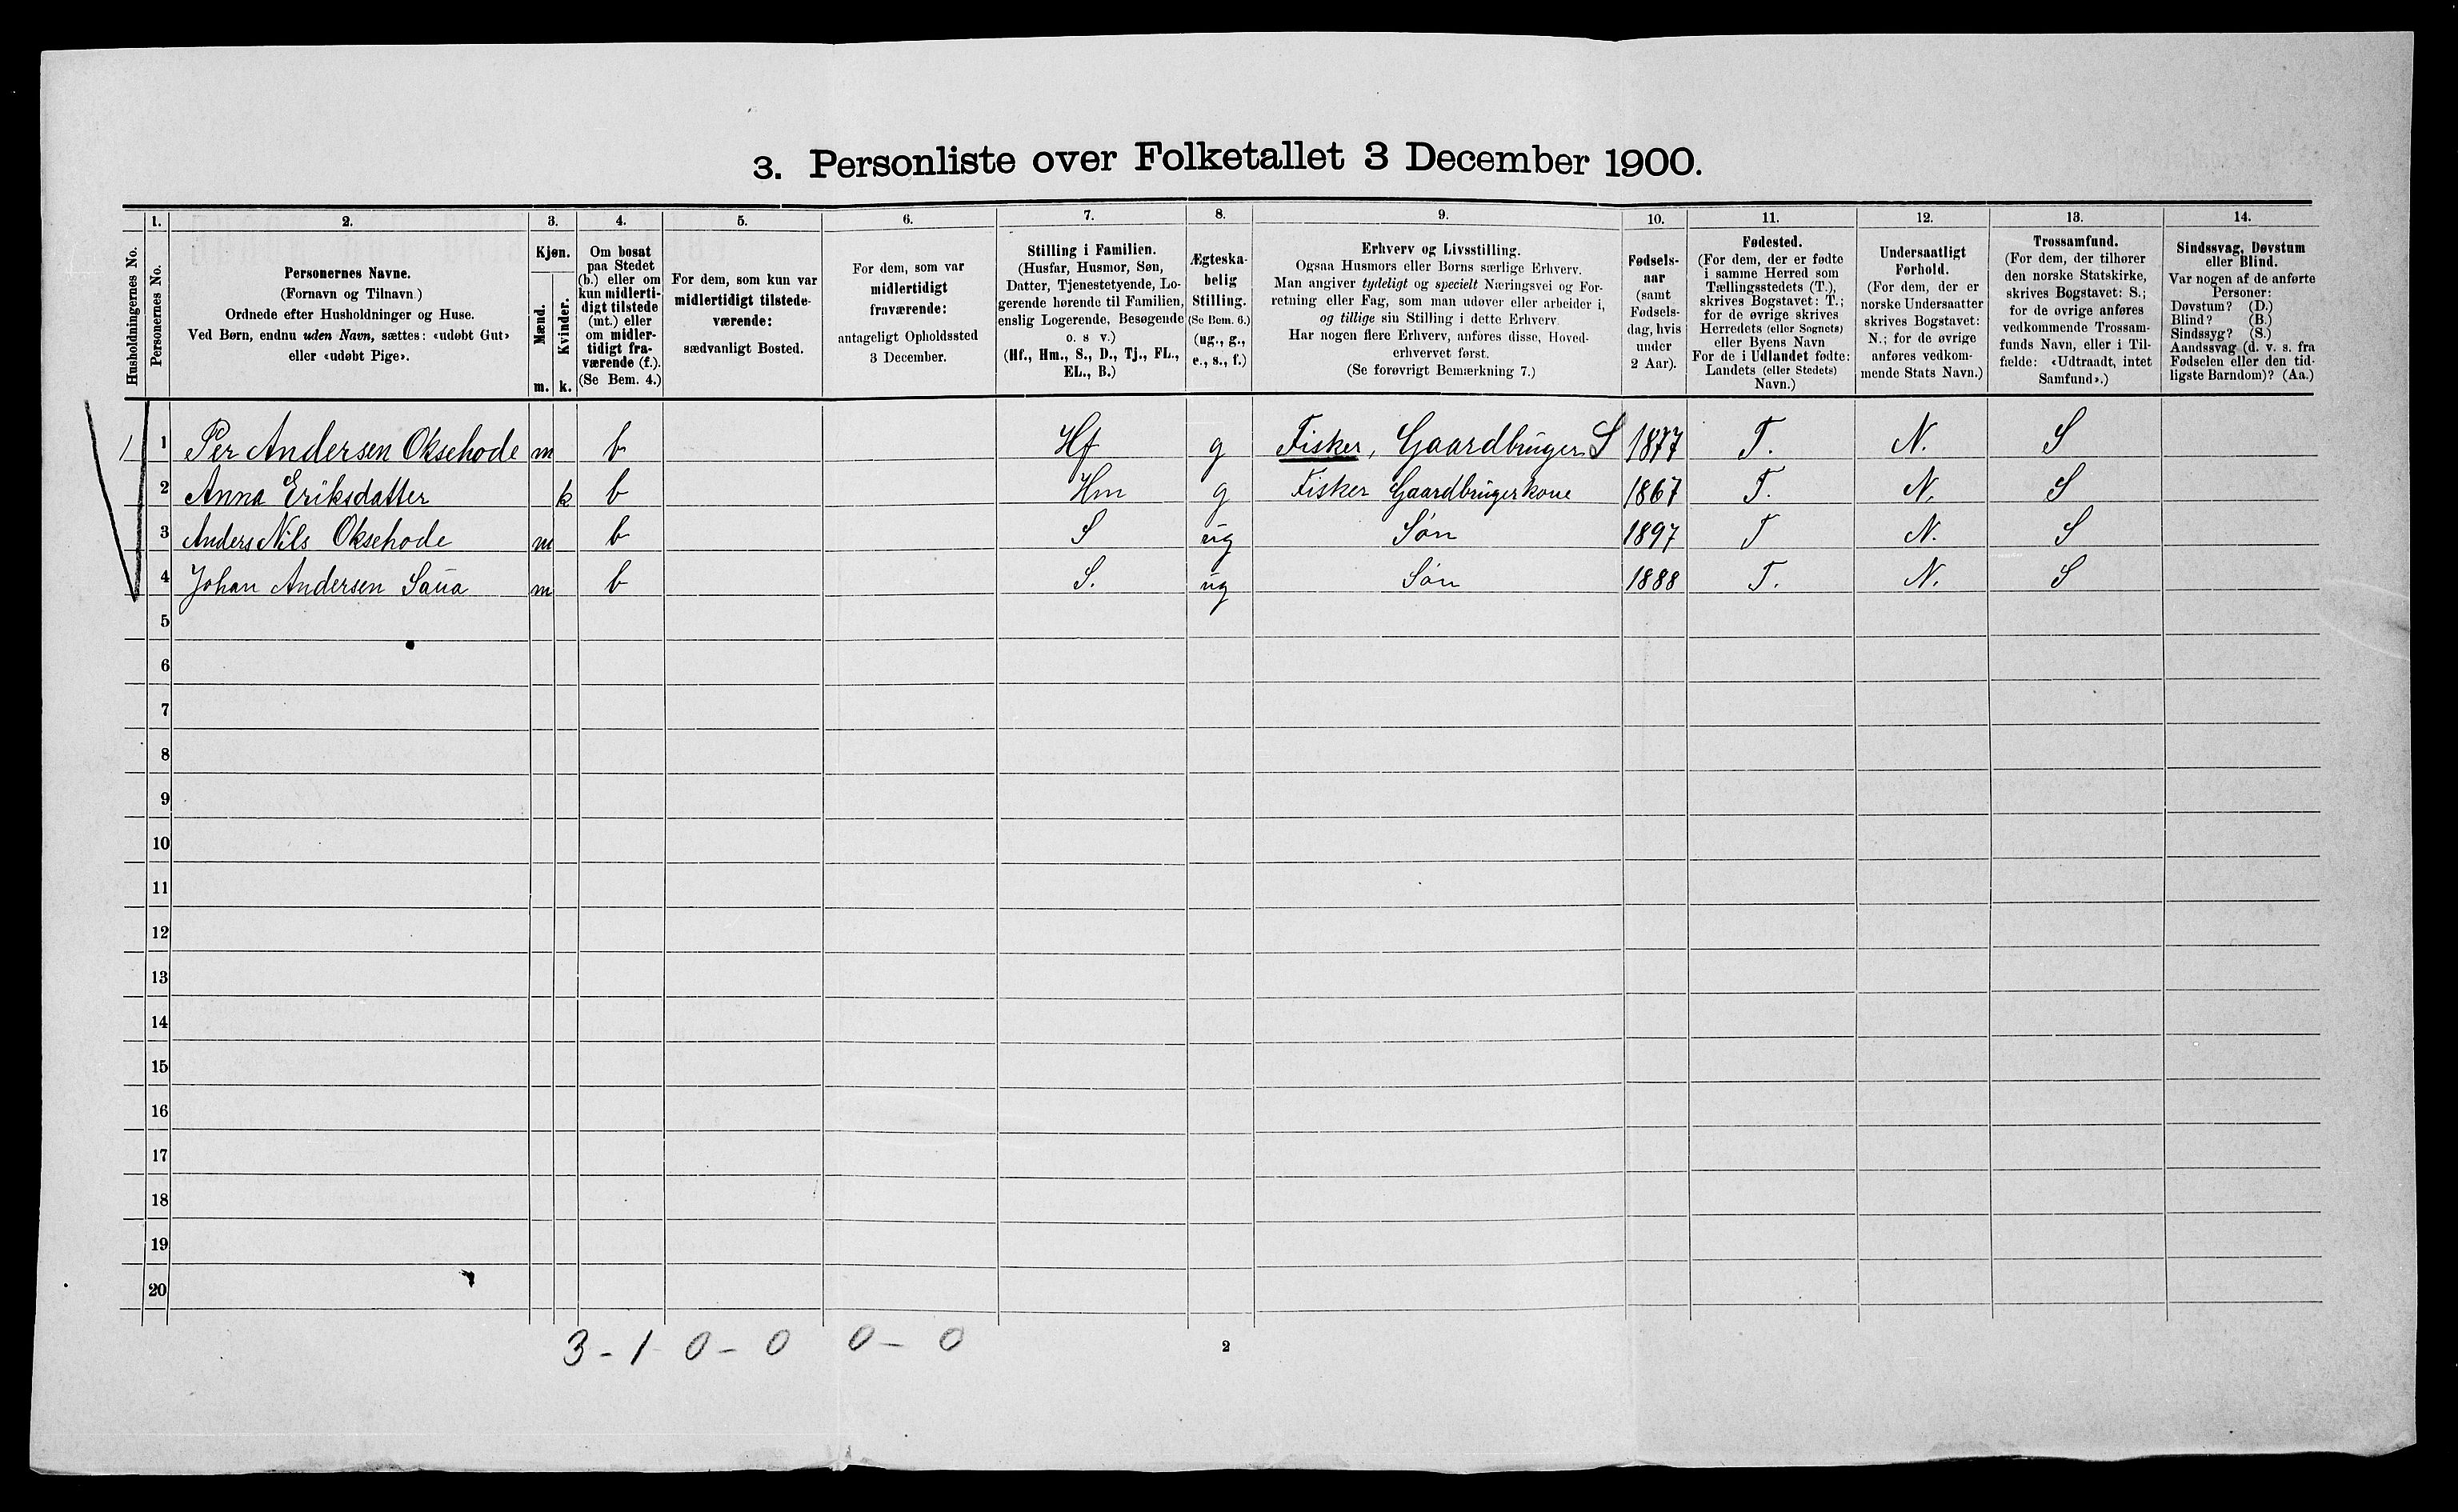 3. Personliste over Folketallet 3 December 1900.
1. 2. 3. 4. 5. 6. 7. 8. 9. 10. 11. 12. 13. 14.
Husholdningernes No.
Personernes No.
Personernes Navne.
(Fornavn og Tilnavn.)
Ordnede efter Husholdninger og Huse.
Ved Børn, endnu uden Navn, sættes: «udøbt Gut»
eller «udøbt Pige».
Kjøn.
Mænd.
Kvinder.
m. k.
Om bosat
paa Stedet
(b.) eller om
kun midlerti-
digt tilstede
(mt.) eller
om midler-
tidigt fra-
værende (f.).
(Se Bem. 4.)
For dem, som kun var
midlertidigt tilstede-
værende:
sædvanligt Bosted.
For dem, som var
midlertidigt
fraværende:
antageligt Opholdssted
3 December.
Stilling i Familien.
(Husfar, Husmor, Søn,
Datter, Tjenestetyende, Lo-
gerende hørende til Familien,
enslig Logerende, Besøgende
o. s v.)
(Hf., Hm., S., D., Tj., FL.,
EL., B.)
Ægteska-
belig
Stilling.
(Se Bem. 6.)
(ug., g.,
e., s., f.)
Erhverv og Livsstilling.
Ogsaa Husmors eller Børns særlige Erhverv.
Man angiver tydeligt og specielt Næringsvei og For-
retning eller Fag, som man udøver eller arbeider i,
og tillige sin Stilling i dette Erhverv.
Har nogen flere Erhverv, anføres disse, Hoved-
erhvervet først.
(Se forøvrigt Bemærkning 7.)
Fødsels-
aar
(samt
Fødsels-
dag, hvis
under
2 Aar).
Fødested.
(For dem, der er fødte
i samme Herred som
Tællingsstedets (T.),
skrives Bogstavet: T.;
for de øvrige skrives
Herredets (eller Sognets)
eller Byens Navn
For de i Udlandet fødte:
Landets (eller Stedets)
Navn.)
Undersaatligt
Forhold.
(For dem, der er
norske Undersaatter
skrives Bogstavet:
N.; for de øvrige
anføres vedkom-
mende Stats Navn.)
Trossamfund.
(For dem, der tilhører
den norske Statskirke,
skrives Bogstavet: S.;
for de øvrige anføres
vedkommende Trossam-
funds Navn, eller i Til-
fælde: «Udtraadt, intet
Samfund».)
Sindssvag, Døvstum
eller Blind.
Var nogen af de anførte
Personer:
Døvstum? (D.)
Blind? (B.)
Sindssyg? (S.)
Aandssvag (d. v. s. fra
Fødselen eller den tid-
ligste Barndom)? (Aa.)
1 1 Per Andersen Oksehode m b Hf g Fisker, Gaardbruger S 1877 T. N. S
2 Anna Eriksdatter k b Hm g Fisker Gaardbrugerkone 1867 T. N. S
3 Anders Nils Oksehode m b S ug Søn 1897 T N. S
4 Johan Andersen Saua m b S. ug Søn 1888 T. N. S
5
6
7
8
9
10
11
12
13
14
15
16
17
18
19
20
3 - 1 0 - 0 0 - 0 2